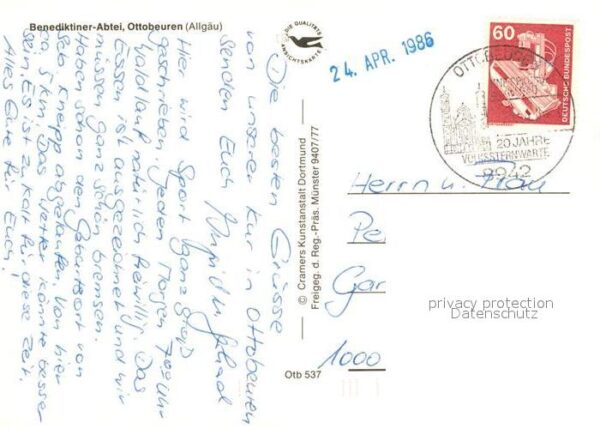 Benediktiner-Abtei, Ottobeuren (Allgäu)
DIE QUALITÄTS
ANSICHTSKARTE
24. APR. 1986
60
DEUTSCHE BUNDESPOST
OTTOBEUREN
20 JAHRE
VOLKSSTERNWARTE
8942
Die besten Grüsse
von unserer Kur in Ottobeuren
senden Euch
Hier wird Sport ganz groß
geschrieben. Jeden Morgen 7 00 Uhr
Waldlauf natürlich freiwillig. Das
Essen ist ausgezeichnet und wir
müssen ganz schön bremsen.
Haben schon den Geburtsort von
Seb. Kneipp abgelaufen. Von hier
ca. 5 km. Das Wetter könnte besser
sein. Es ist zu kalt für diese Zeit.
Alles Gute für Euch!
© Cramers Kunstanstalt Dortmund
Freigeg. d. Reg.-Präs. Münster 9407/77
Otb 537
Herrn u. Frau
Pe
Gar
1000
privacy protection
Datenschutz